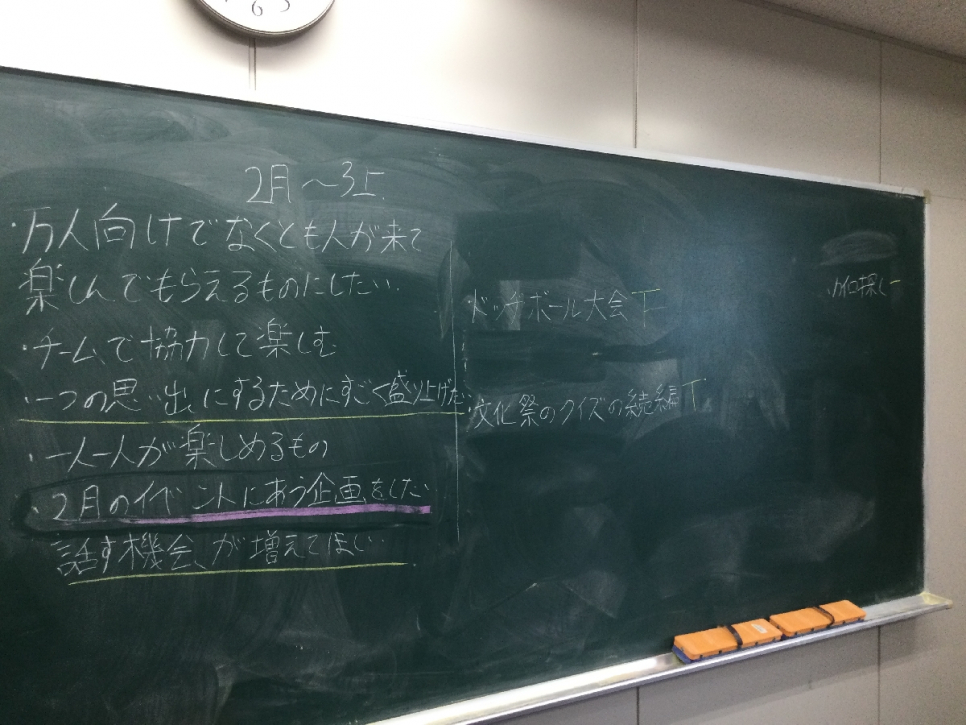 6
2月～3上
・万人向けでなくとも人が来て
楽しんでもらえるものにしたい.
・チームで協力して楽しむ
・一つの思い出にするためにすごく盛り上げたい
・一人一人が楽しめるもの
・2月のイベントにあう企画をしたい
話す機会が増えてほしい
・ドッチボール大会 T
・文化祭のクイズの続編 T
カイロ探し